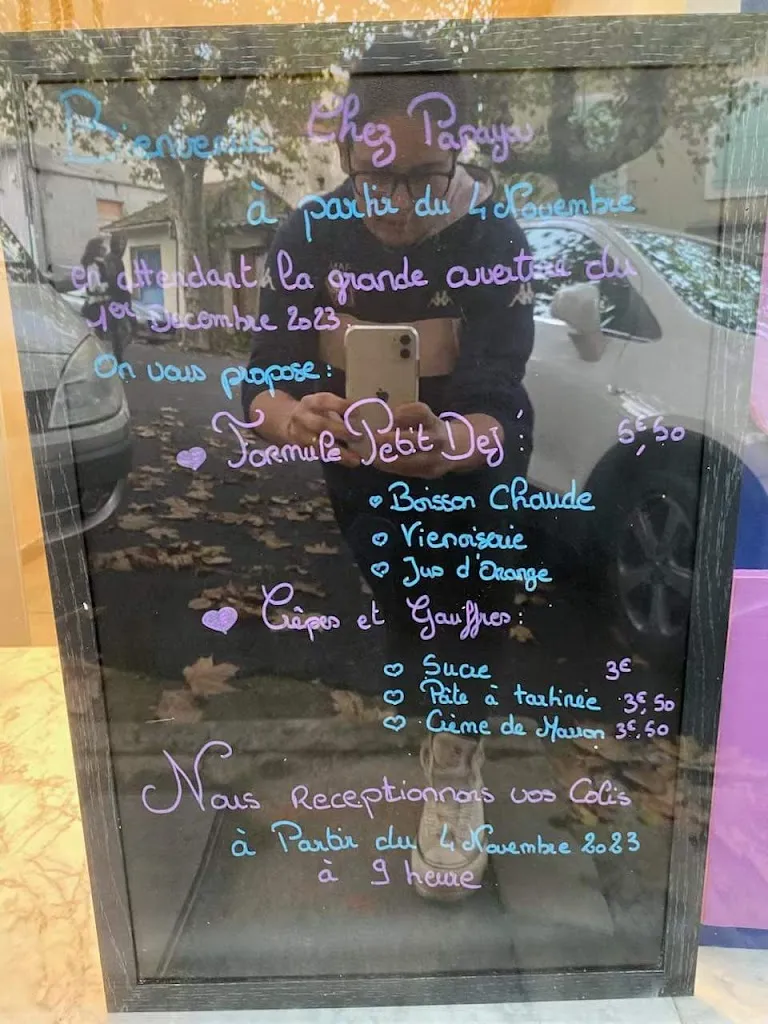 Bienvenue Chez Papaya
à partir du 4 Novembre
en attendant la grande ouverture du
1er Decembre 2023.
On vous propose:
Formule Petit Dej: 5€,50
Boisson Chaude
Vienoiserie
Jus d'Orange
Crêpes et Gauffres:
Sucre 3€
Pâte à tartinée 3€,50
Crème de Marron 3€,50
Nous Receptionnons vos Colis
à Partir du 4 Novembre 2023
à 9 heure